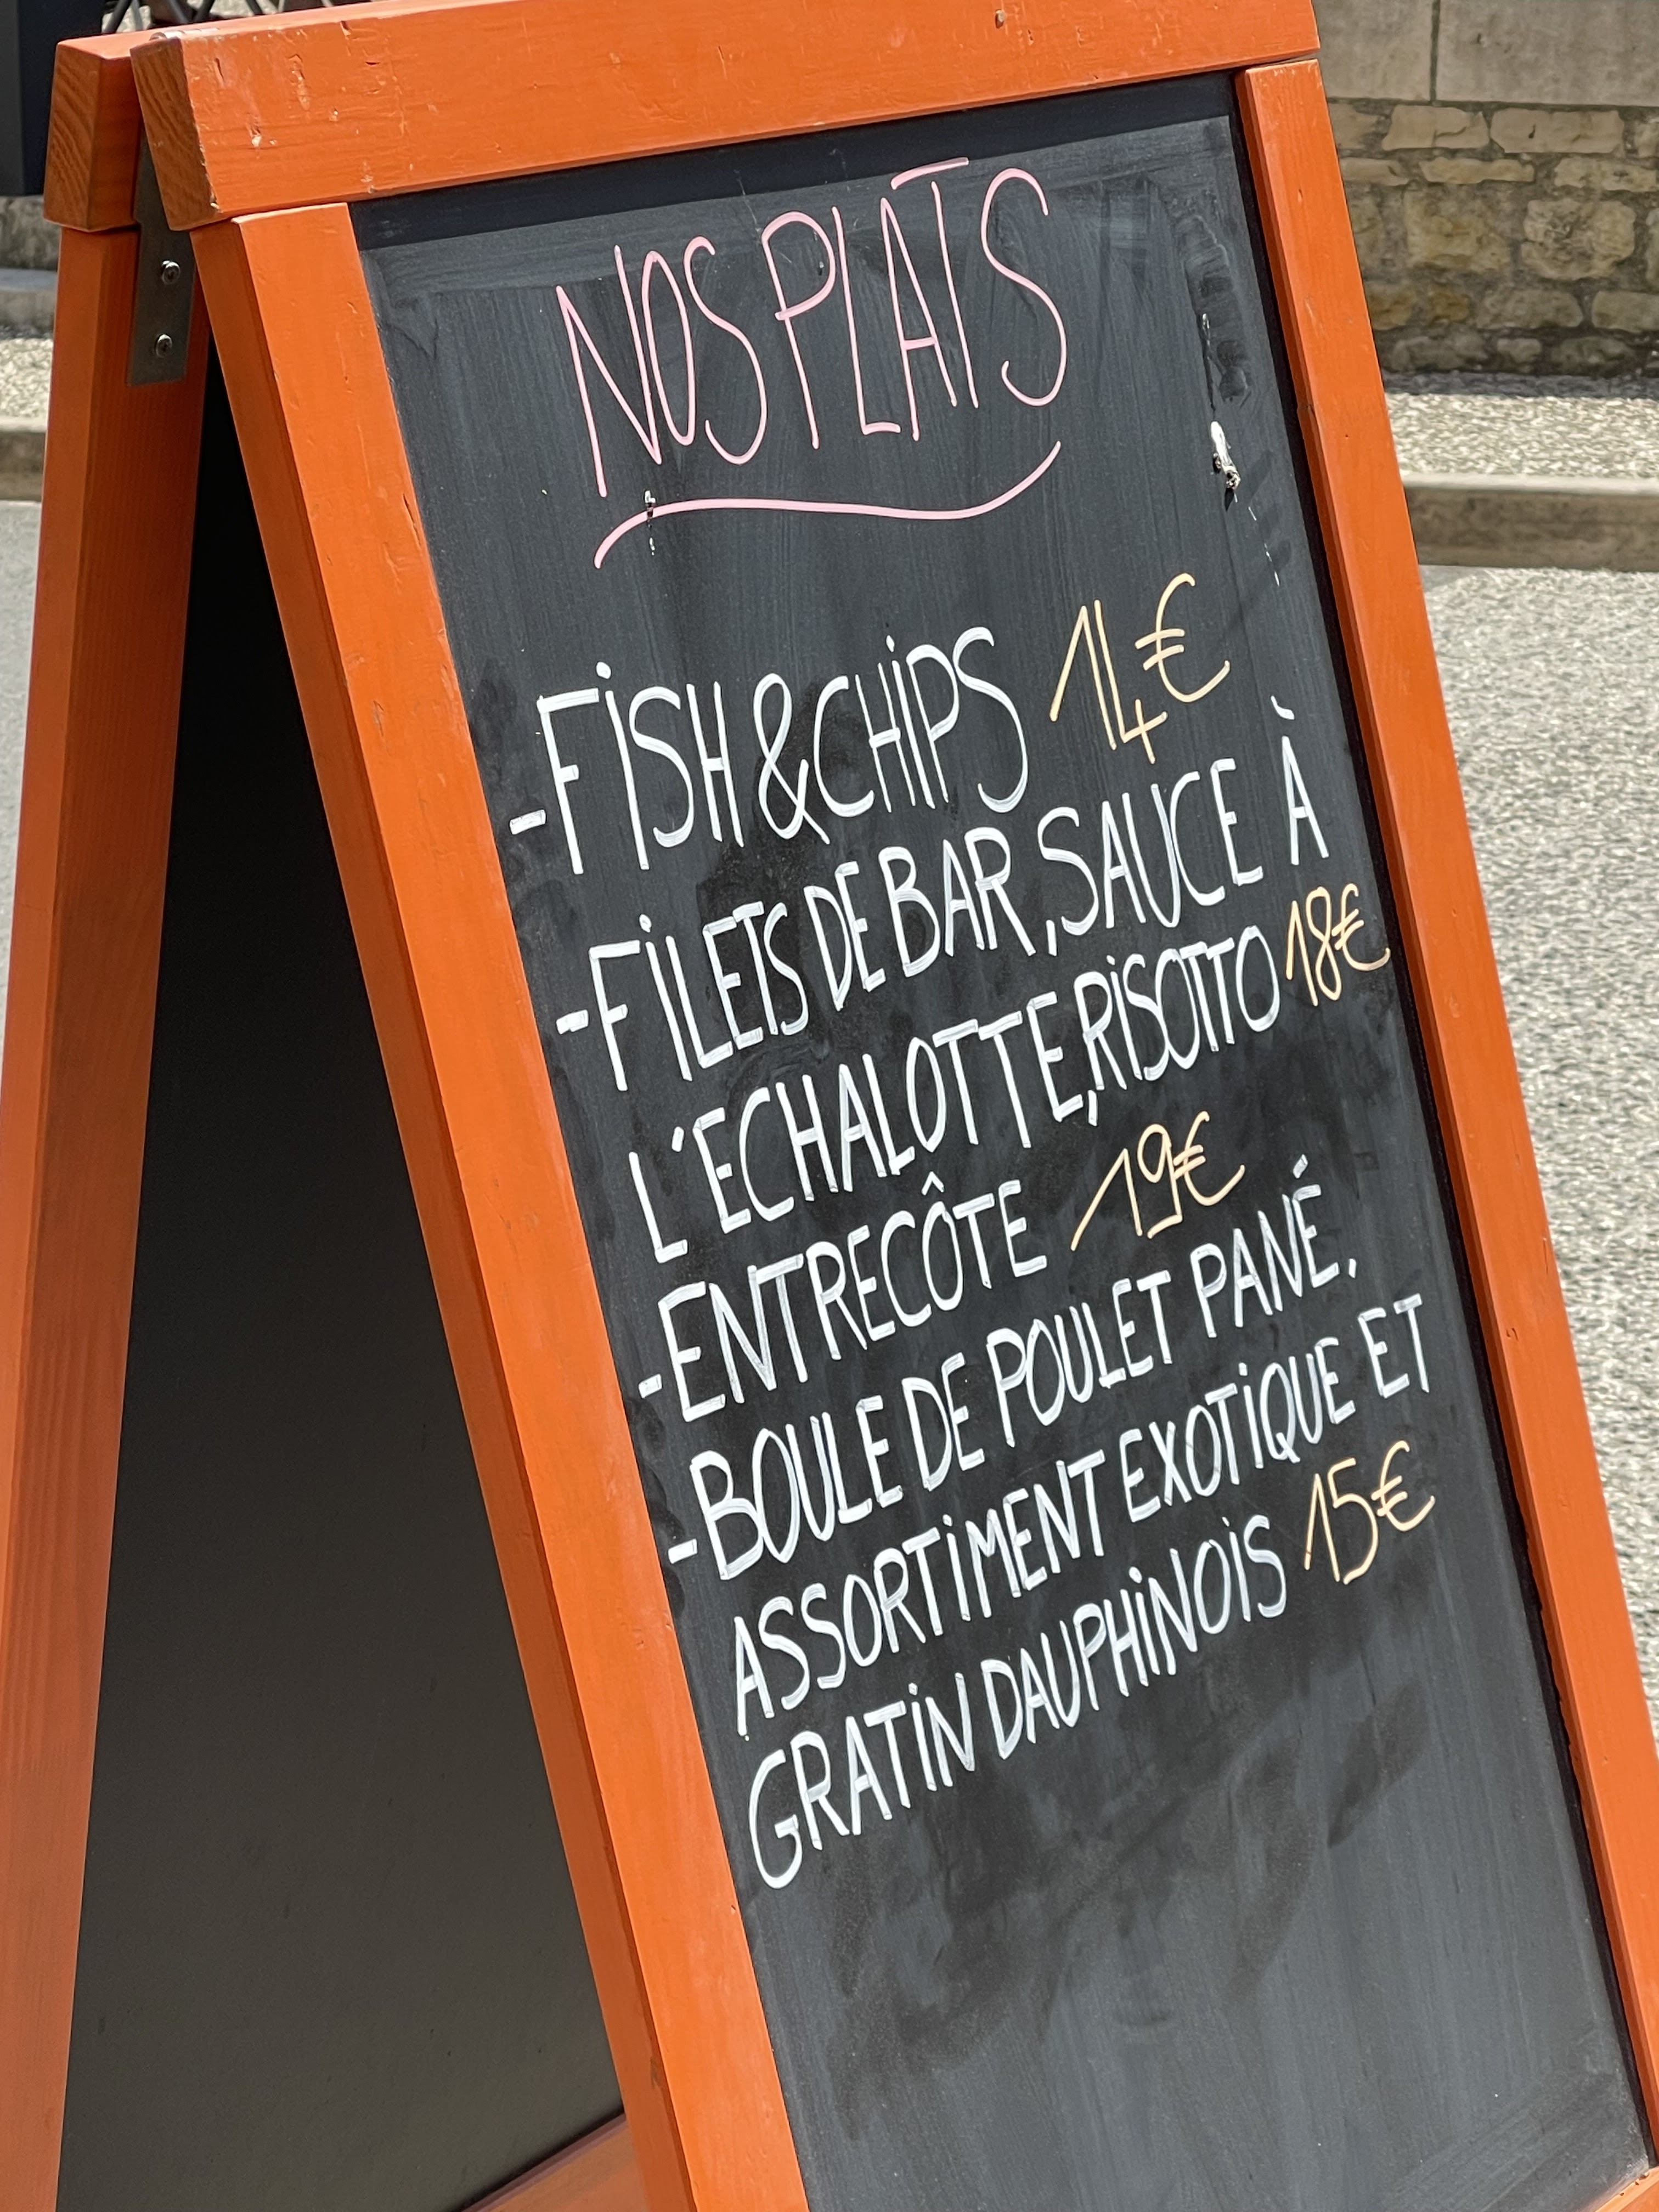 NOS PLATS
-FISH & CHIPS 14€
-FILETS DE BAR, SAUCE À
L'ECHALOTTE, RISOTTO 18€
-ENTRECÔTE 19€
-BOULE DE POULET PANÉ,
ASSORTIMENT EXOTIQUE ET
GRATIN DAUPHINOIS 15€